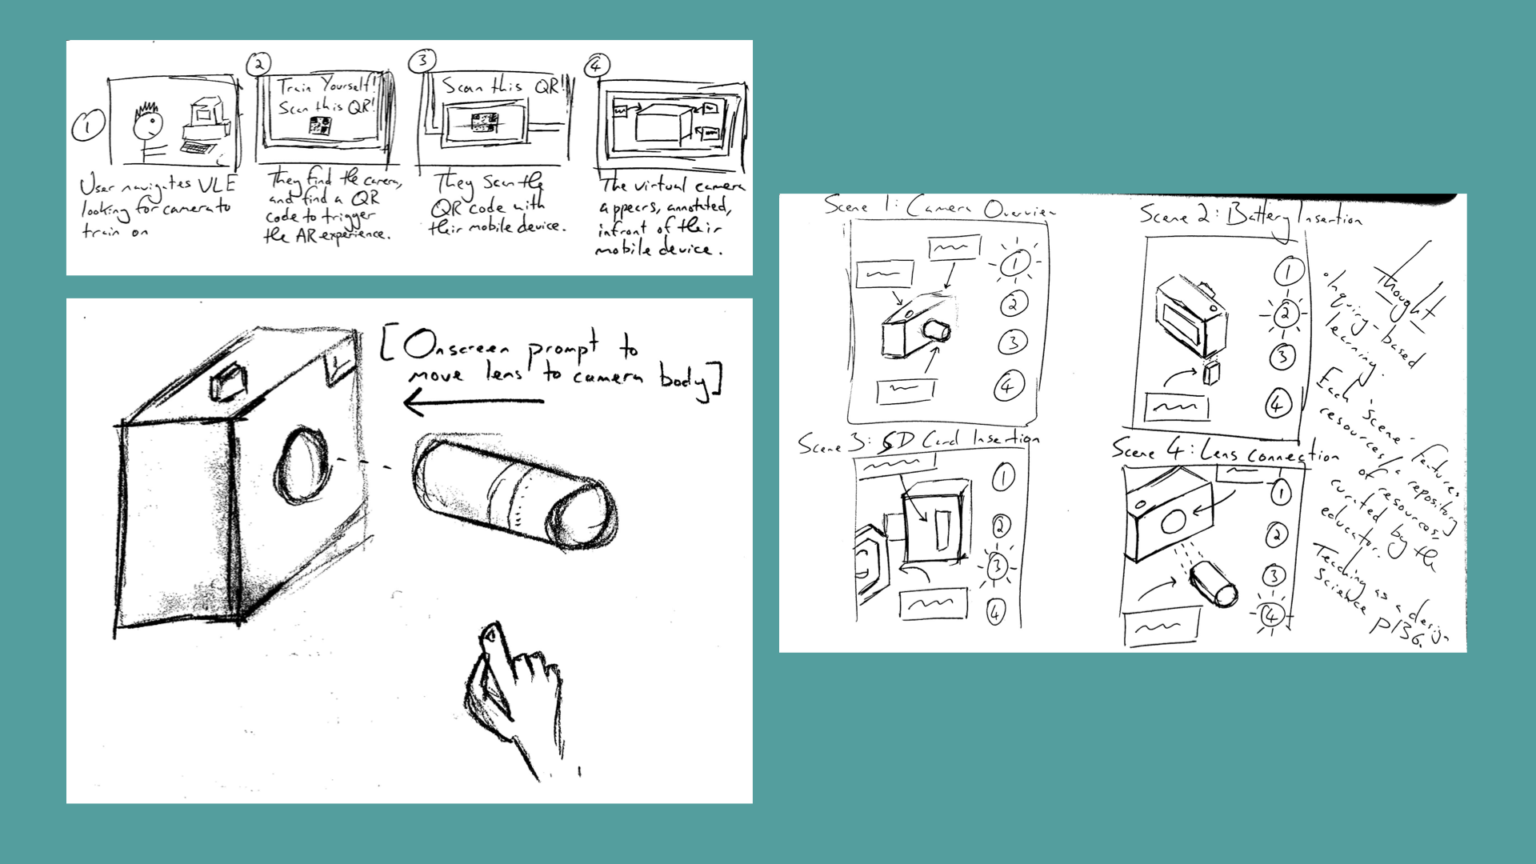 1
User navigates VLE
looking for camera to
train on
2
Train Yourself!
Scan this QR!
They find the camera,
and find a QR
code to trigger
the AR experience.
3
Scan this QR!
They scan the
QR code with
their mobile device.
4
The virtual camera
appears, annotated,
infront of their
mobile device.
[Onscreen prompt to
move lens to camera body]
Scene 1: Camera Overview
1
2
3
4
Scene 2: Battery Insertion
1
2
3
4
Scene 3: SD Card Insertion
1
2
3
4
Scene 4: Lens Connection
1
2
3
4
Thought
inquiry-based
learning.
Each 'scene' features
resources/a repository
of resources,
curated by the
educator.
Teaching as a design
science p136.